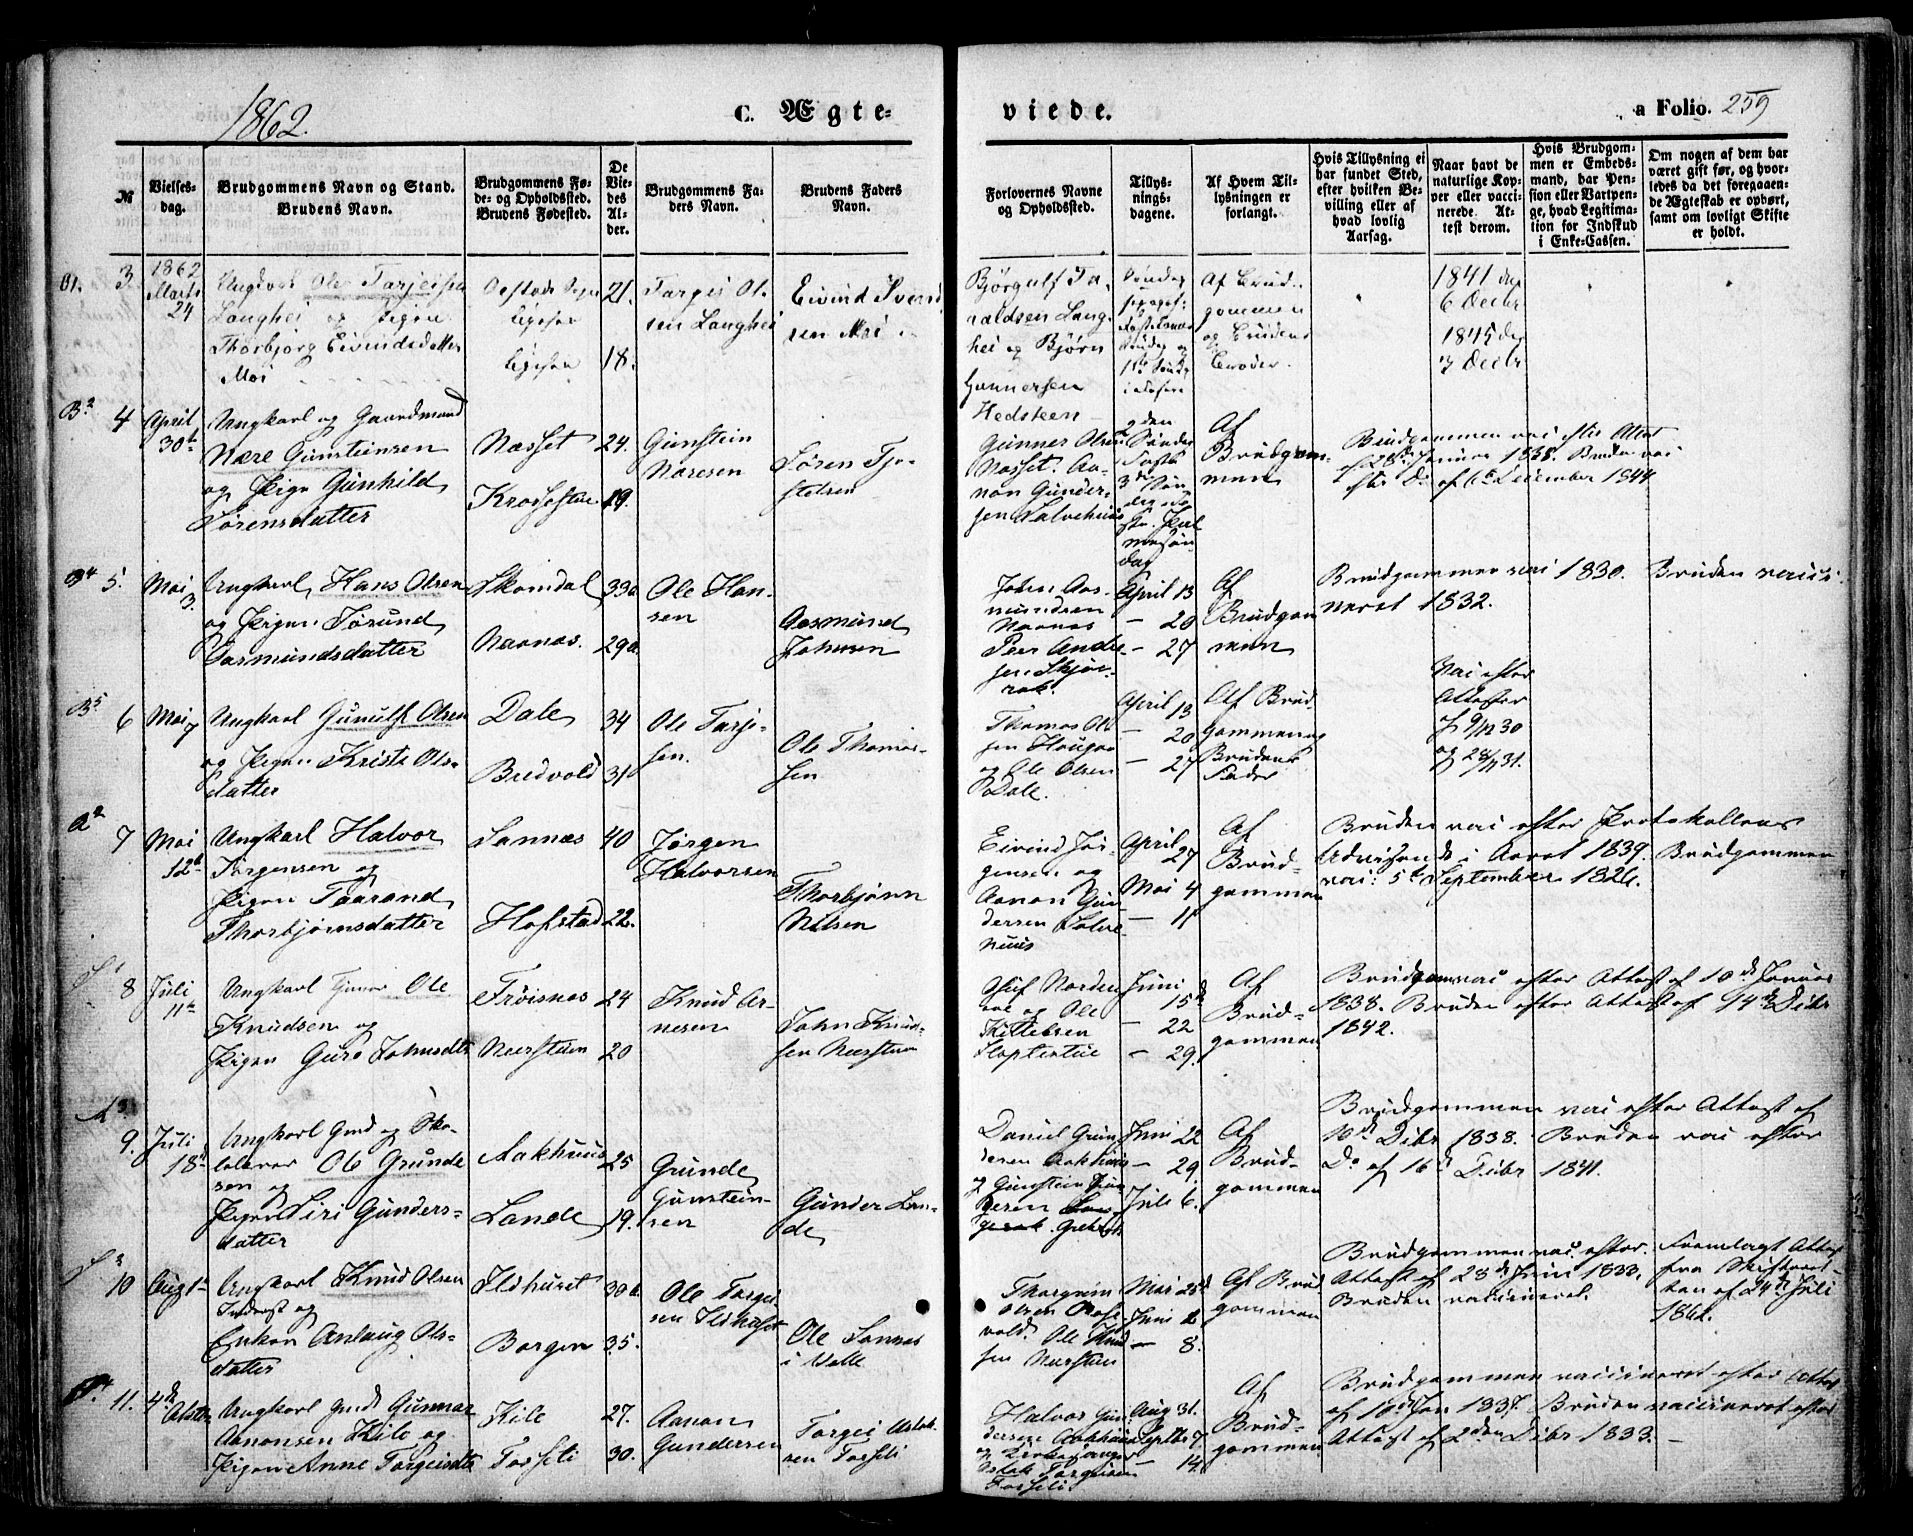 1862.
C. Ægte-
viede.
a Folio. 259
№
Vielses-
dag.
Brudgommens Navn og Stand.
Brudens Navn.
Brudgommens Fø-
de- og Opholdssted.
Brudens Fødested.
De
Vie-
des
Al-
der.
Brudgommens Fa-
ders Navn.
Brudens Faders
Navn.
Forlovernes Navne
og Opholdssted.
Tillys-
nings-
dagene.
Af Hvem Til-
lysningen er
forlangt.
Hvis Tillysning ei
har fundet Sted,
efter hvilken Be-
villing eller af
hvad lovlig
Aarsag.
Naar havt de
naturlige Kop-
per eller vacci-
nerede. At-
test derom.
Hvis Brudgom-
men er Embeds-
mand, har Pen-
sion eller Vartpen-
ge, hvad Legitima-
tion for Indskud
i Enke-Cassen.
Om nogen af dem har
været gift før, og hvor-
ledes da det foregaaen-
de Ægteskab er ophørt,
samt om lovligt Skifte
er holdt.
3
1862
Marts
24
Ungkarl Ole Tarjeisen
Langhei og Pigen
Thorbjørg Eivindsdatter
Moi
21.
18.
Targei Ol-
sen Langhei
Eivind Svend
sen Moi
Bjørgulf Ta-
raldsen Lang-
hei og Bjørn
Gunnersen
Hedsteen
Af Brud-
gommen
og Brudens
Broder.
1841 den
6 Decbr
1845 den
3 Decbr
B2 4
April
30te
Ungkarl og Gaardmand
Nære Gunsteinsen
og Pige Gunhild
Sørensdatter
Næsset
24.
Krossstue 19.
Gunstein
Naresen
Søren Tjo-
stelsen
Gunner Olsen
Næsset. Aa-
non Gunder-
sen Salvehuus
2den
Søndag
Faste
3die Søn
dag
Palmesøn
dag
Af
Brudgom-
men
Brudgommen vac. efter Attest
af 28de Januar 1838. Bruden vac
efter Do af 6te December 1844
B4 5.
Mai
3.
Ungkarl Hans Olsen
og Pigen Jørund
Aasmundsdatter
Skomdal
33
Naonas.
29
Ole Han-
sen
Aasmund
Johnsen
John Aas-
mundsen
Naonas
Peer Ander-
sen
April 13
— 20
— 27
Af
Brudgom
men
Brudgommen vac. 1830. Bruden vacci-
neret 1832.
B5 6
Mai
7
Ungkarl Gunulf Olsen
og Pigen Kristi Ols-
datter
Dale
34
Bredvold 31
Ole Tarje-
sen.
Ole Thomas-
sen
Thomas Ol-
sen Haugaa
og Ole Olsen
Dale.
April 13
— 20
— 27
Af Brud
gommen og
Brudens
Fader
Vac. efter
Attester
af 9/12 30
og
af 28/11 31.
A2 7
Mai
12te
Ungkarl Halvor
Jørgensen og
Pigen Taarand
Thorbjørnsdatter
Sannæs 40
Hofstad 22.
Jørgen
Halvorsen
Thorbjønn
Nilsen
Eivind Jør-
gensen og
Aanon Gun
dersen Salve
huus
April
27
Mai 4
— 11
Af
Brud-
gommen
Bruden vac. efter Protokollens
Udvisende i Aaret 1839. Brudgommen
vac. 5te September 1826.
8
Juli
11te
Ungkarl Ole
Knudsen og
Pigen Guro Johnsdtr
Frøisnæs 24
Nærstean 20
Knud Ar-
nesen
John Knud-
sen Nærstean
Oluf Norden
og Ole
Kittelsen
Juni
15de
— 22
— 29.
Af
Brud-
gommen
Brudgom. vac. efter Attest af 10de Januar
1838. Bruden efter Attest af 14de Decbr
1842.
9.
Juli
18de
Ungkarl Gmd og Sko-
lelærer Ole Grunde
sen og
Pigen Siri Gunders-
datter
Aakhuus 25
Lande 19.
Grunde
Gunstein-
sen
Gunder Lan-
de
Daniel Gun
dersen Aakhuus
og Gunstein
Juni 22
— 29.
Juli 6.
Af
Brud-
gommen
Brudgommen vac. efter Attest af
10de Decbr 1838. Bruden vac. efter
Do af 16de Decbr 1841.
10
Aug 1ste
Ungkarl Knud Olsen
Inderst og
Enken Anlaug Ols-
datter
Ildhuset 30
Borgen 35.
Ole Targei-
sen Ildhuset
Ole Sannes
i Valle
Thorgrim
Olsen
Ole Knud
sen Nærstean
Mai 25de
Juni 1
— 8.
Af Brud
gommen
Brudgommen vac. efter
Attest af 23de Juni 1833.
Bruden vaccineret.
Fremlagt Attest
fra Skifteret-
ten af 24de Juli
1862.
11.
4de
Ungkarl Gmd Gunnar
Aanonsen Kile og
Pigen Anne Targeisdtr
Kile 27.
Fosseli 30.
Aanon
Gundersen
Targei Aslak-
sen Fosseli
Halvor Gun-
dersen Aakhuus
og Kirkesanger
Aslak Targeisen
Fosseli
Aug 31.
Septbr 7
— 14.
Af
Brud-
gommen
Brudgommen vaccineret efter Attest
af 10de Jan 1837. Bruden vaccineret efter
Attest af 2den Decbr 1833. —